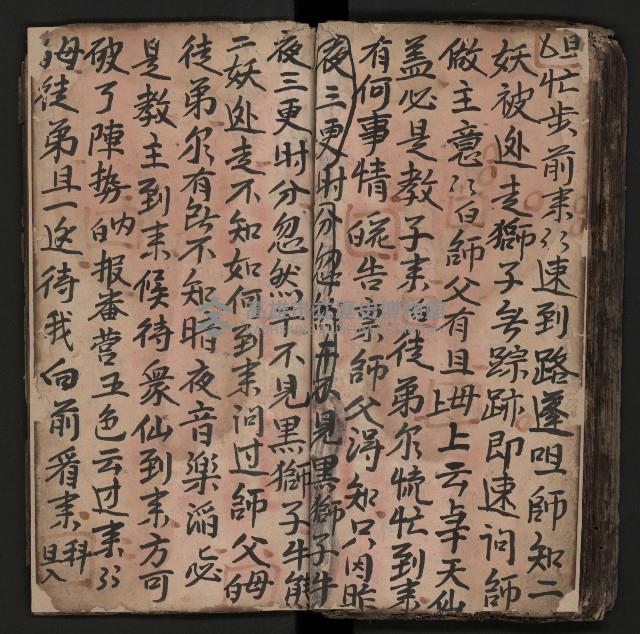 旦忙步前来〻速到路蓬咀師知二
妖被処走獅子無踪跡即速问師
做主意〻白師父有旦毋上云上奉天仙
盖必是教子来 徒弟尔慌忙到来
有何事情 説告 師父得知只因昨
夜三更时分忽 不见黑獅子牛
夜三更时分忽然 不見黑獅子牛熊
二妖処走不知如何到来问过師父母白
徒弟尔有所不知暗夜音樂滔必
是教主到来候待衆仙到来方可
破了陣勢的报番营五色云过来〻
毋徒弟且一边待我向前看来科旦入
高雄市立歷史博物館
KAOHSIUNG MUSEUM OF HISTORY